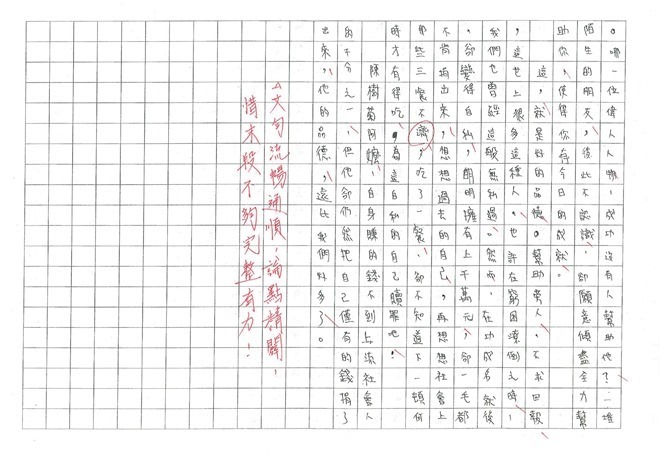 。哪一位偉人人物,成功沒有人幫助他?一堆
陌生的朋友,彼此不認識,卻願意傾盡全力幫
助你,使得你有今日的成就。
這,就是好的品德。幫助旁人,不求回報
,這世上很多這種人。也許在窮困潦倒之時,
我們也曾經這般無私過。然而,在功成名就後
,卻變得自私,明明擁有上千萬元,卻一毛都
不肯掏出來,想想過去的自己,再想想社會上
那些三餐不濟,吃了一餐,卻不知道下一頓何
時才有得吃,為這自私的自己贖罪吧!
陳樹菊阿嬤,自身賺的錢不到上流社會人
的千分之一,但他卻仍然把自己僅有的錢捐了
出來,他的品德,遠比我們好多了。
△文句流暢通順,論點精闢,
惜末段不夠完整有力!